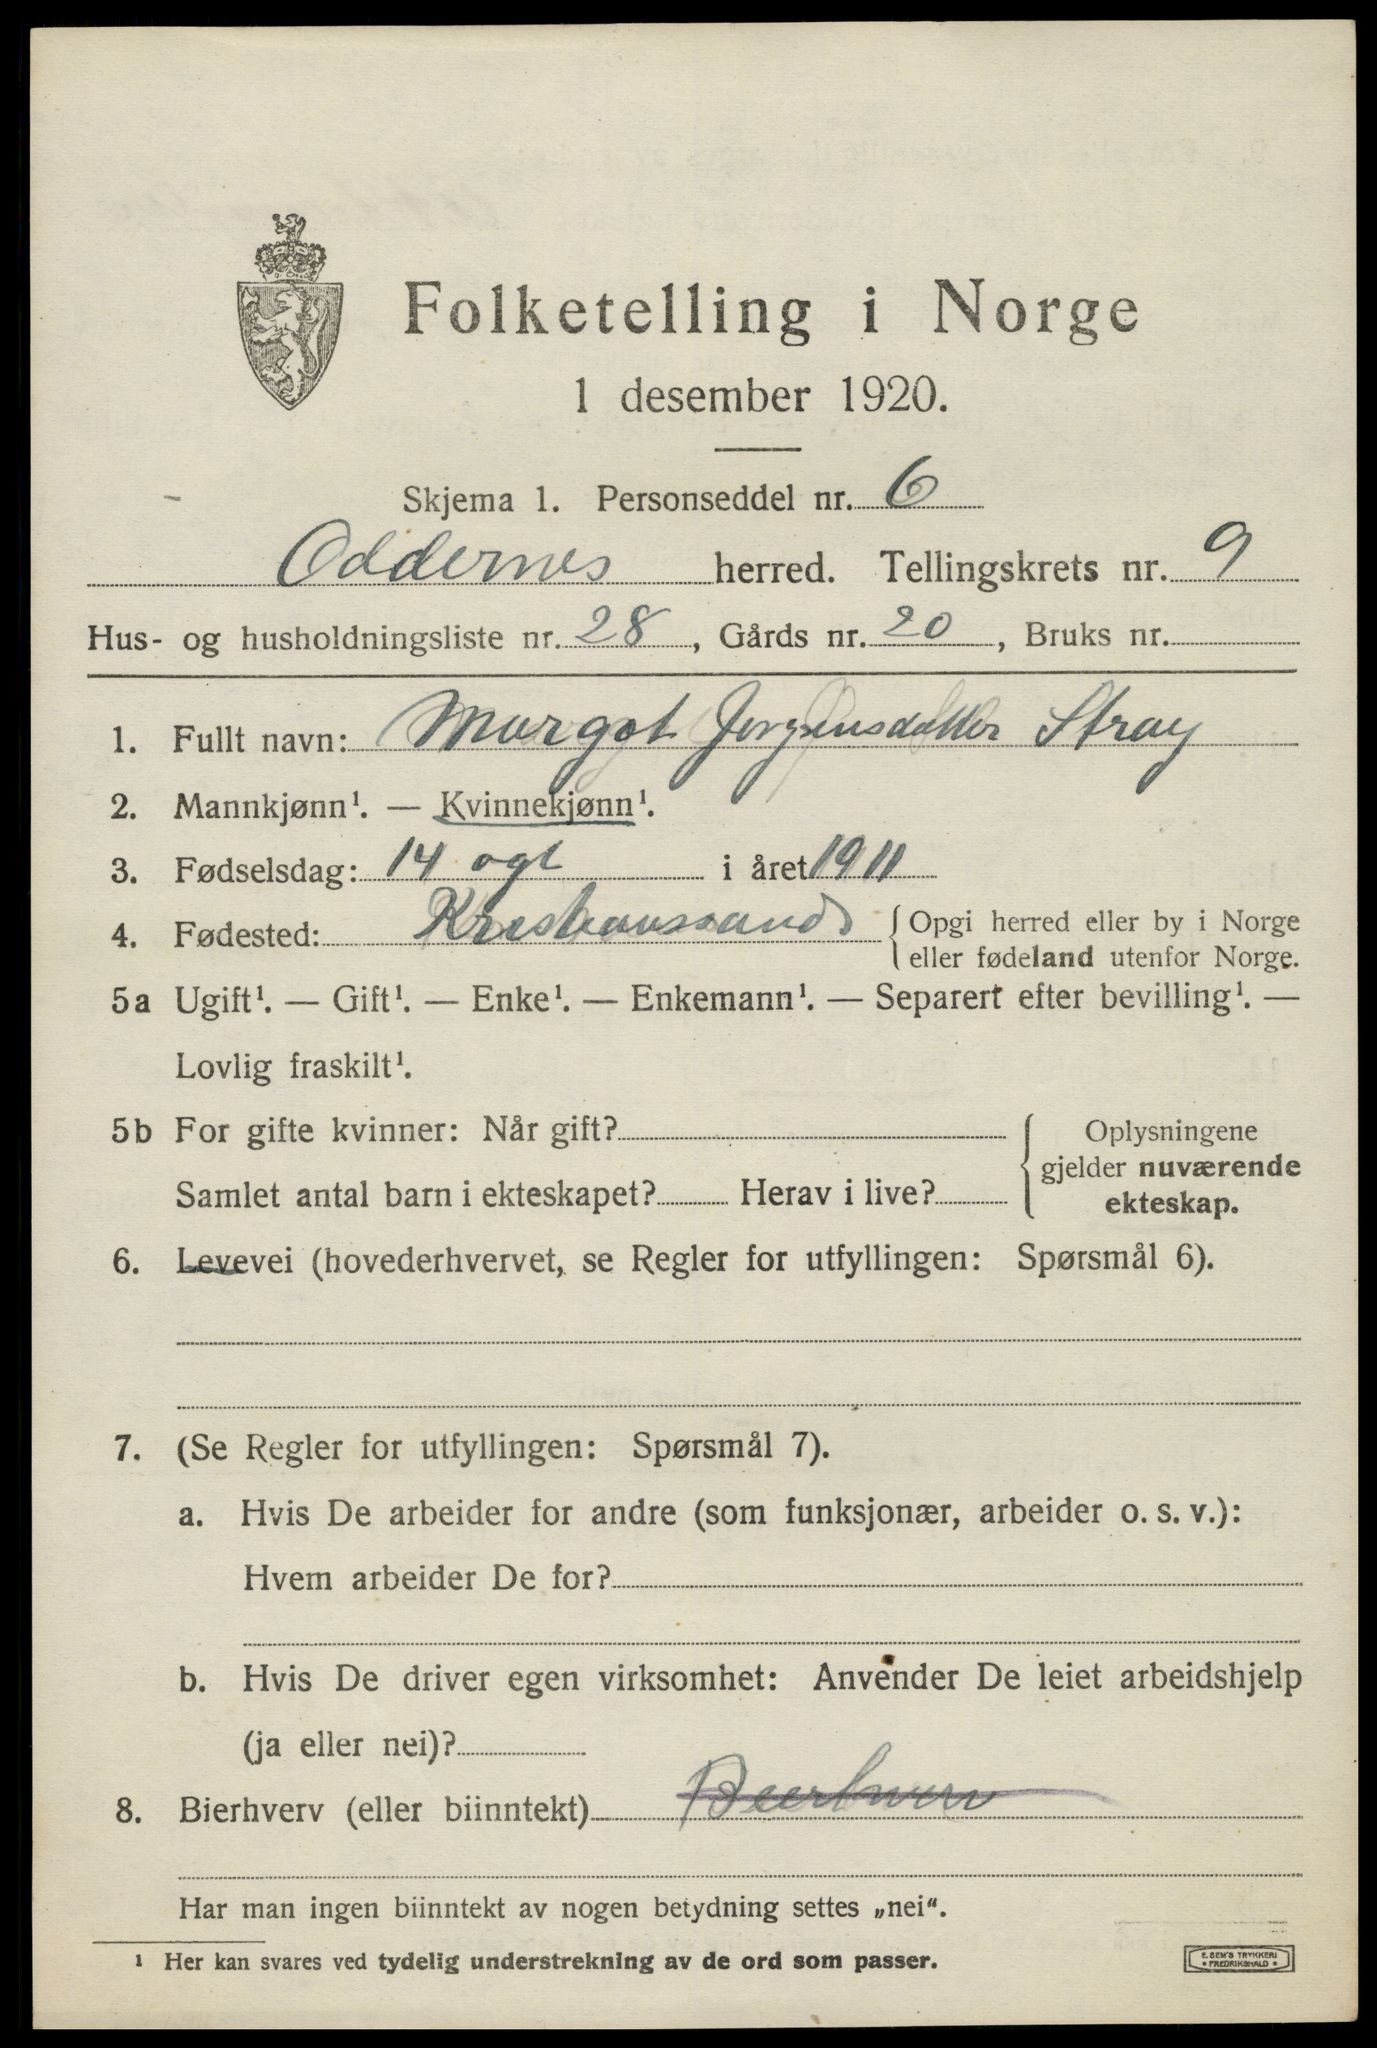 Folketelling i Norge
1 desember 1920.
Skjema 1. Personseddel nr. 6
Oddernes herred. Tellingskrets nr. 9
Hus- og husholdningsliste nr. 28, Gårds nr. 20, Bruks nr.
1. Fullt navn: Margot Jørgensdatter Stray
2. Mannkjønn¹. — Kvinnekjønn¹.
3. Fødselsdag: 14 ogt i året 1911
4. Fødested: Kristianssand { Opgi herred eller by i Norge
eller fødeland utenfor Norge.
5a Ugift¹. — Gift¹. — Enke¹. — Enkemann¹. — Separert efter bevilling¹. —
Lovlig fraskilt¹.
5b For gifte kvinner: Når gift? { Oplysningene
gjelder nuværende
Samlet antal barn i ekteskapet? Herav i live? ekteskap.
6. Levevei (hovederhvervet, se Regler for utfyllingen: Spørsmål 6).
7. (Se Regler for utfyllingen: Spørsmål 7).
a. Hvis De arbeider for andre (som funksjonær, arbeider o. s. v.):
Hvem arbeider De for?
b. Hvis De driver egen virksomhet: Anvender De leiet arbeidshjelp
(ja eller nei)?
8. Bierhverv (eller biinntekt)
Har man ingen biinntekt av nogen betydning settes „nei“.
¹ Her kan svares ved tydelig understrekning av de ord som passer.
E. SEM'S TRYKKERI
FREDRIKSHALD